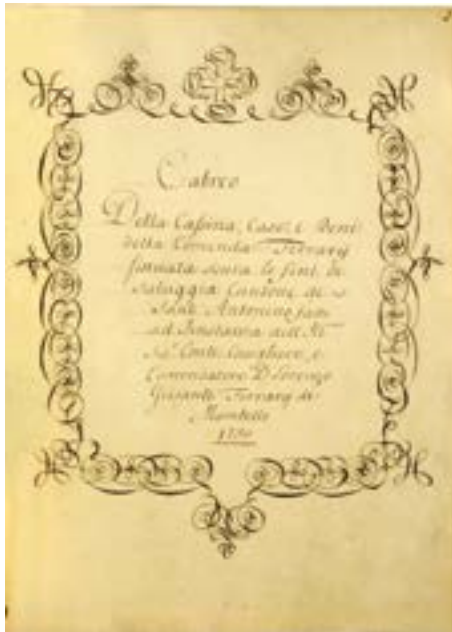 Cabreo
Della Cassina, Case, e Beni
della Comenda Ferrary
situata sovra le fini di
Salaggia Cantone di
Sant Antonino fatto
ad Instanza dell'Ill
Sig. Conte Cavagliere, e
Comendatore D. Lorenzo
Ferrary di
Montello